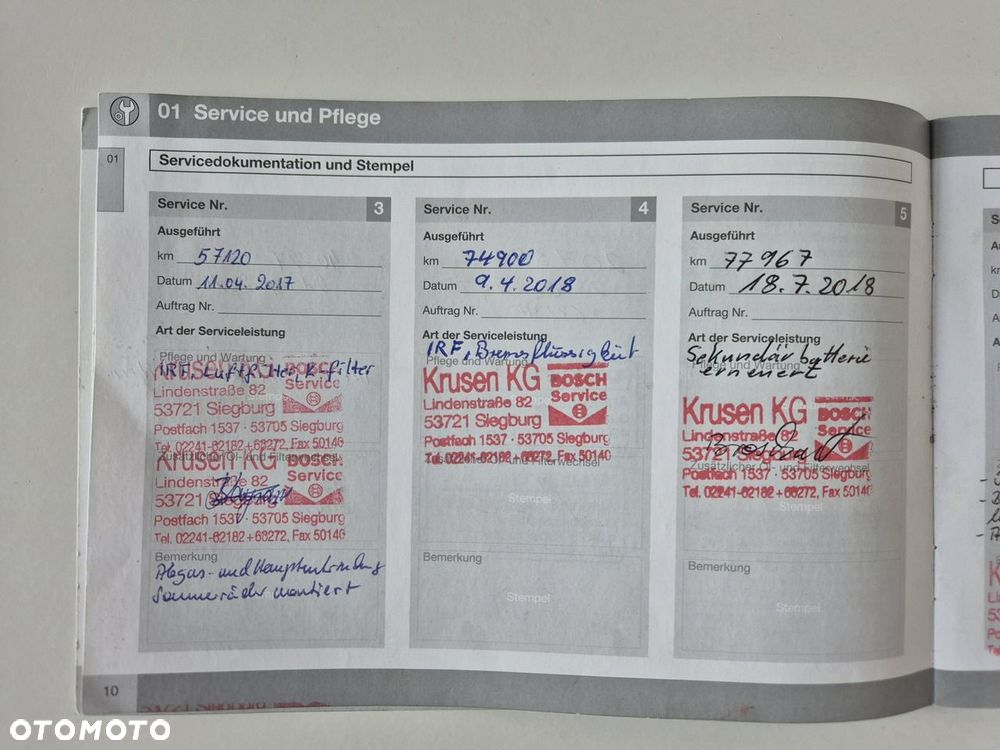 01 Service und Pflege
01
Servicedokumentation und Stempel
Service Nr. 3
Ausgeführt
km 57120
Datum 11.04.2017
Auftrag Nr.
Art der Serviceleistung
Pflege und Wartung
IRF, Luftfilter, K-filter
Krusen KG BOSCH
Lindenstraße 82 Service
53721 Siegburg
Postfach 1537 · 53705 Siegburg
Tel. 02241-62182+63272, Fax 50146
Zusätzlicher Öl- und Filterwechsel
Krusen KG BOSCH
Lindenstraße 82 Service
53721 Siegburg
Postfach 1537 · 53705 Siegburg
Tel. 02241-62182+63272, Fax 50146
Bemerkung
Abgas- und Hauptuntersuchung
Sommerräder montiert
Service Nr. 4
Ausgeführt
km 74900
Datum 9.4.2018
Auftrag Nr.
Art der Serviceleistung
IRF, Bremsflüssigkeit
Pflege und Wartung
Krusen KG BOSCH
Lindenstraße 82 Service
53721 Siegburg
Postfach 1537 · 53705 Siegburg
Zusätzlicher Öl- und Filterwechsel
Stempel
Bemerkung
Stempel
Service Nr. 5
Ausgeführt
km 77967
Datum 18.7.2018
Auftrag Nr.
Art der Serviceleistung
Sekundärbatterie
erneuert
Pflege und Wartung
Krusen KG BOSCH
Lindenstraße 82 Service
53721 Siegburg
Zusätzlicher Öl- und Filterwechsel
Postfach 1537 · 53705 Siegburg
Tel. 02241-62182+63272, Fax 50146
Stempel
Bemerkung
Stempel
10
OTOMOTO